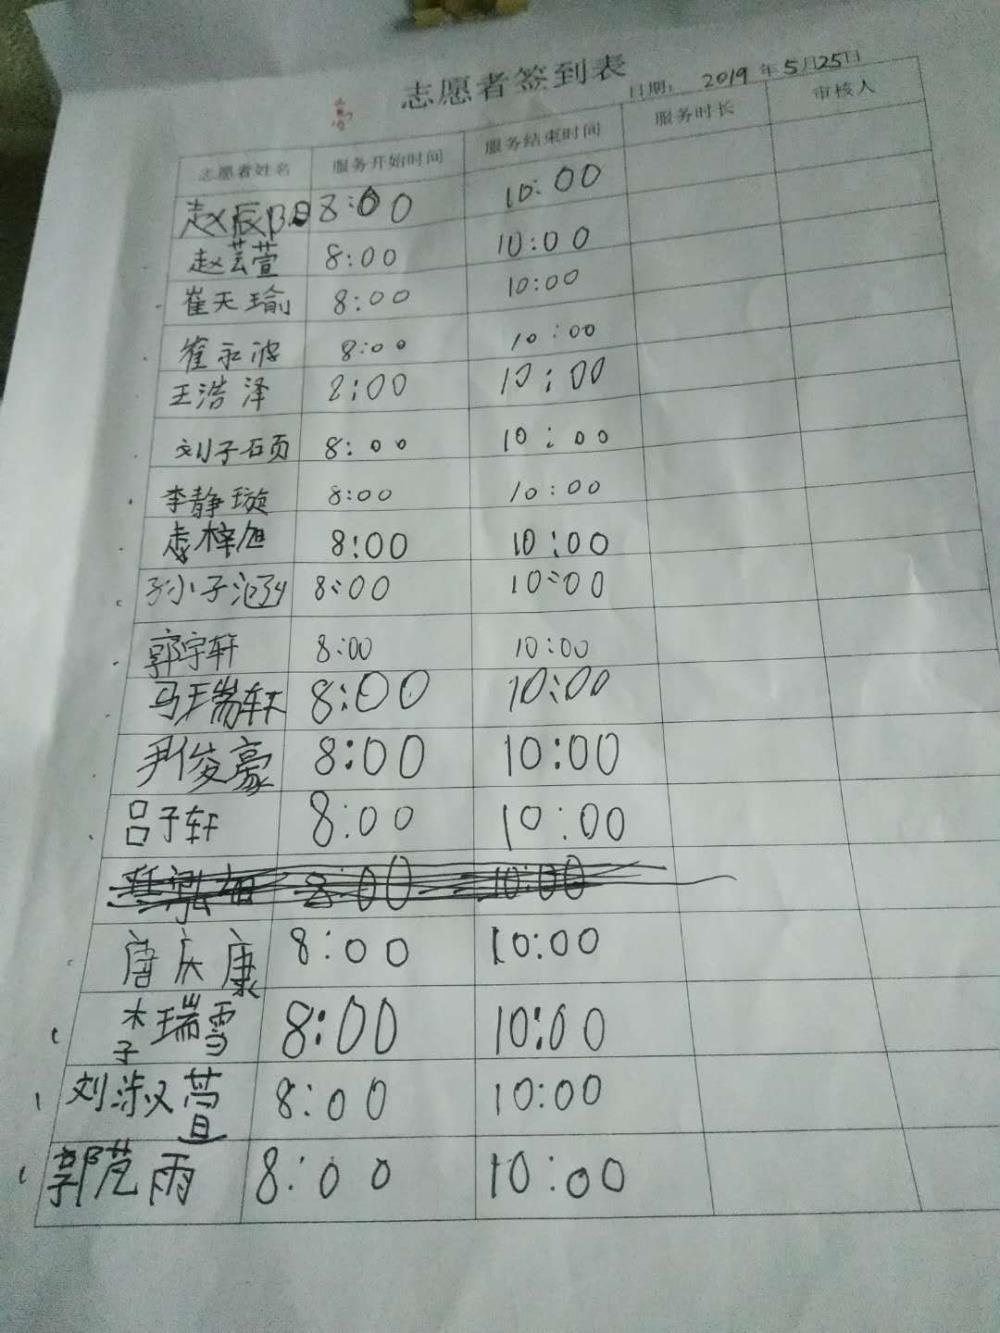 志愿者签到表
日期: 2019年5月25日
志愿者姓名 服务开始时间 服务结束时间 服务时长 审核人
赵辰阳 8:00 10:00
赵芸萱 8:00 10:00
崔天瑜 8:00 10:00
崔永波 8:00 10:00
王浩泽 8:00 10:00
刘子硕 8:00 10:00
李静璇 8:00 10:00
李梓旭 8:00 10:00
孙子 8:00 10:00
郭宇轩 8:00 10:00
马瑞轩 8:00 10:00
尹俊豪 8:00 10:00
吕子轩 8:00 10:00
8:00 10:00
唐庆康 8:00 10:00
李瑞雪 8:00 10:00
刘淑萱 8:00 10:00
郭艺雨 8:00 10:00